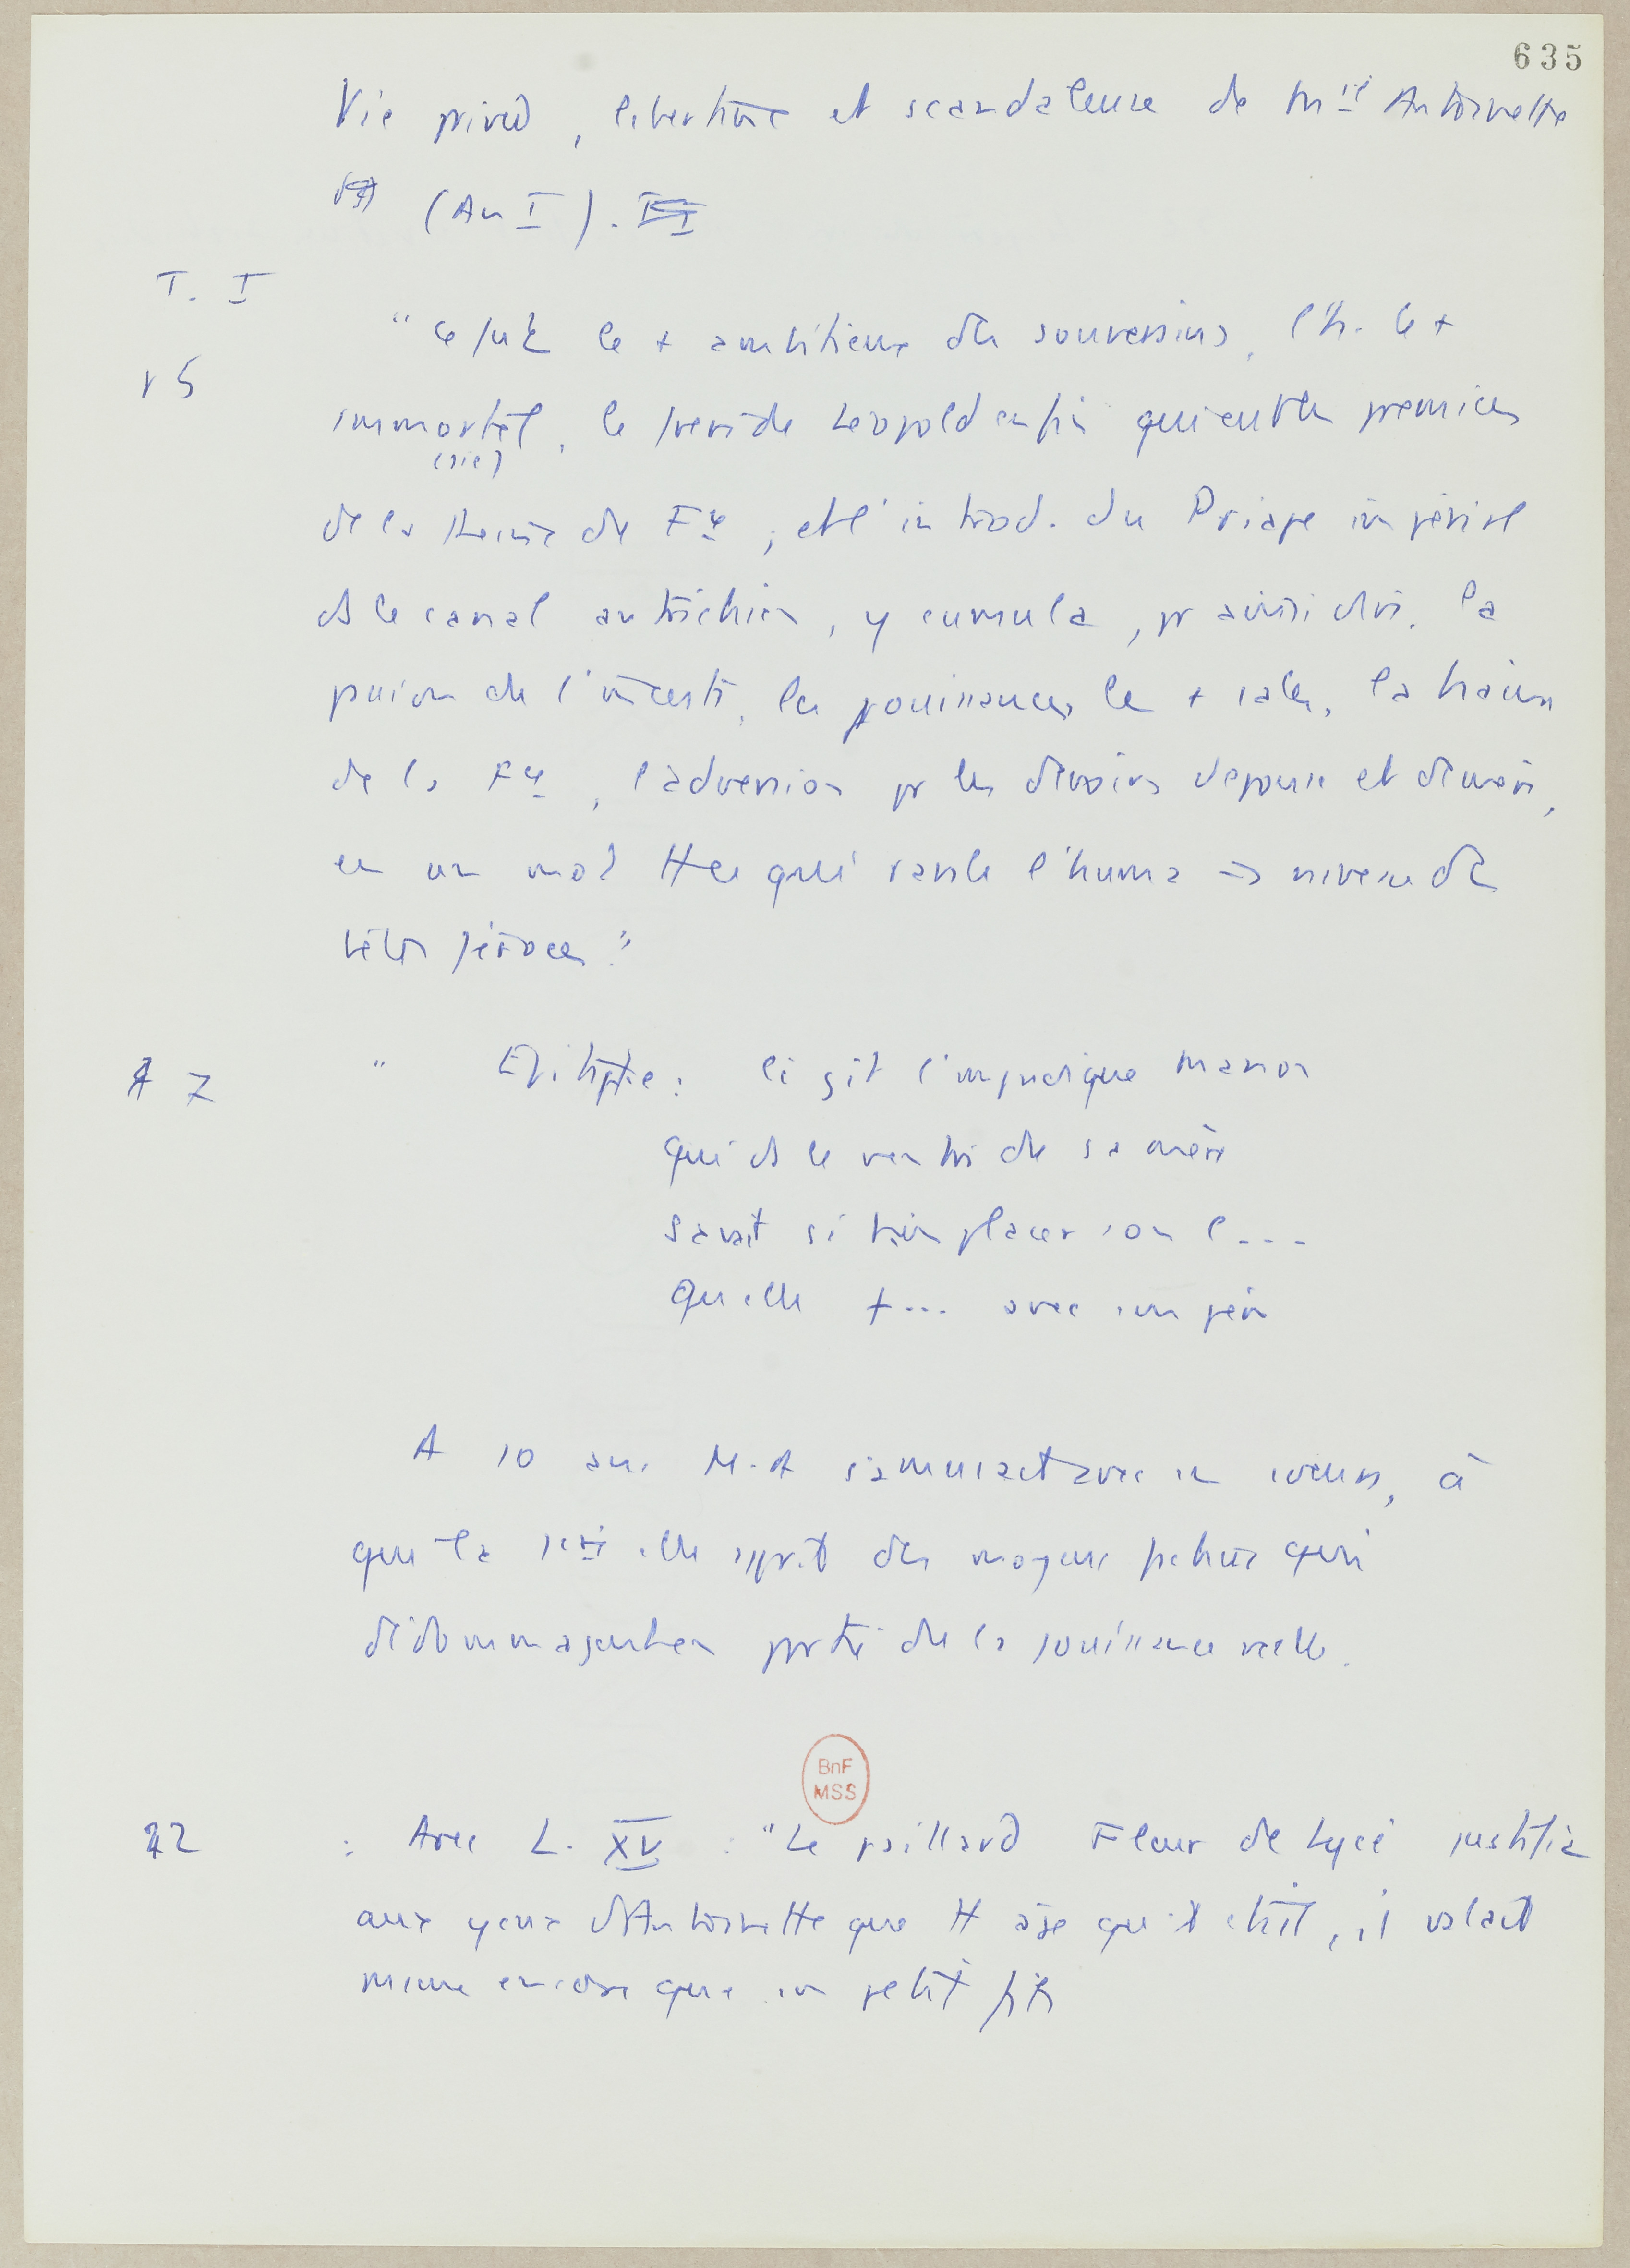 635
Vie privée, libertine et scandaleuse de Mie Antoinette
(An I).
T. I
"Ce fut le + ambitieux des souverains, l'h. le +
r 5
immortel, le frère de Léopold enfin qui eut les prémices
(sic)
de la Reine de Fce ; et l'introd. du Priape impérial
ds le canal autrichien, y cumula, pr ainsi dire, la
passion de l'inceste, les jouissances les + sales, la haine
de la Fce, l'adversion pr les devoirs d'épouse et de mère,
en un mot tt ce qui ravale l'huma → niveau des
bêtes féroces"
7
" Epitaphe : Ci gît l'impudique Manon
qui ds le ventre de sa mère
Savait si bien placer son c...
Qu'elle f... avec son père
A 10 ans M-A s'amusait avec ses soeurs, à
elle apprit des moyens factices qui
dédommagent en partie de la jouissance réelle.
BnF
MSS
22
: Avec L. XV : "Le paillard Fleur de Lysé justifia
aux yeux d'Antoinette que tt âgé qu'il était, il valait
mieux encore que son petit fils